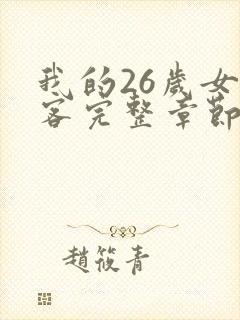 我的26歲女
客完整章節
趙筱青